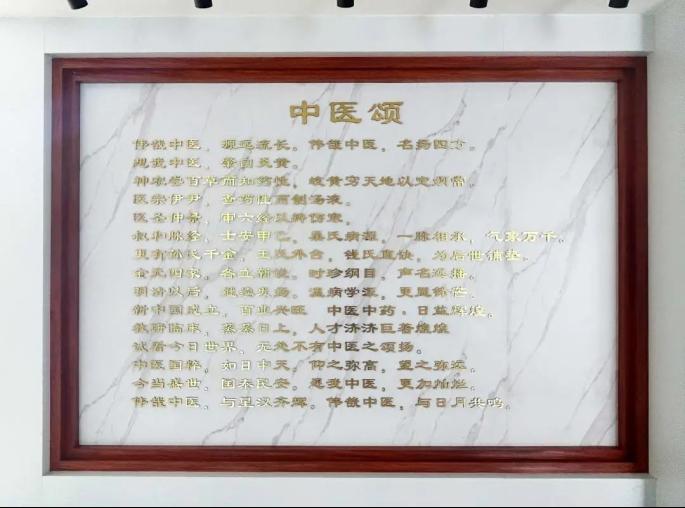 中医颂
伟哉中医，源远流长。伟哉中医，名扬四方。
观我中医，肇自炎黄。
神农尝百草而知药性，岐黄穷天地以定阴阳。
医宗伊尹，查药性而制汤液。
医圣仲景，审六经以辨伤寒。
叔和脉经，士安甲乙，巢氏病源，一脉相承，气象万千。
更有孙氏千金，王氏外台，钱氏直诀，为后世铺垫。
金元四家，各立新说。时珍纲目，声名远播。
明清以后，温病学派，更显锋芒。
新中国成立，百业兴旺 中医中药，日益辉煌。
教研临床，蒸蒸日上，人才济济巨著煌煌
试看今日世界，无处不有中医之颂扬。
中医国粹，如日中天，仰之弥高，望之弥远。
今当盛世，国泰民安。愿我中医，更加灿烂。
伟哉中医，与星汉齐辉。伟哉中医，与日月共鸣。